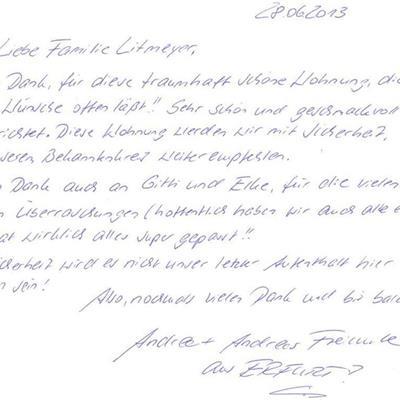 28062013
Liebe Familie Litmeyer,
Dank, für diese traumhaft schöne Wohnung, die
Wünsche offen läßt!! Sehr schön und geschmackvoll
richtet. Diese Wohnung werden wir mit Sicherheit,
seren Bekanntenkreis weiterempfehlen.
Dank auch an Gitti und Elke, für die vielen
Überraschungen (hoffentlich haben wir auch alle
at wirklich alles super gepasst!!
icherheit wird es nicht unser letzter Aufenthalt hier
n sein!
Also, nochmals vielen Dank und bis bald
Andrea + Andreas
aus ERFURT!